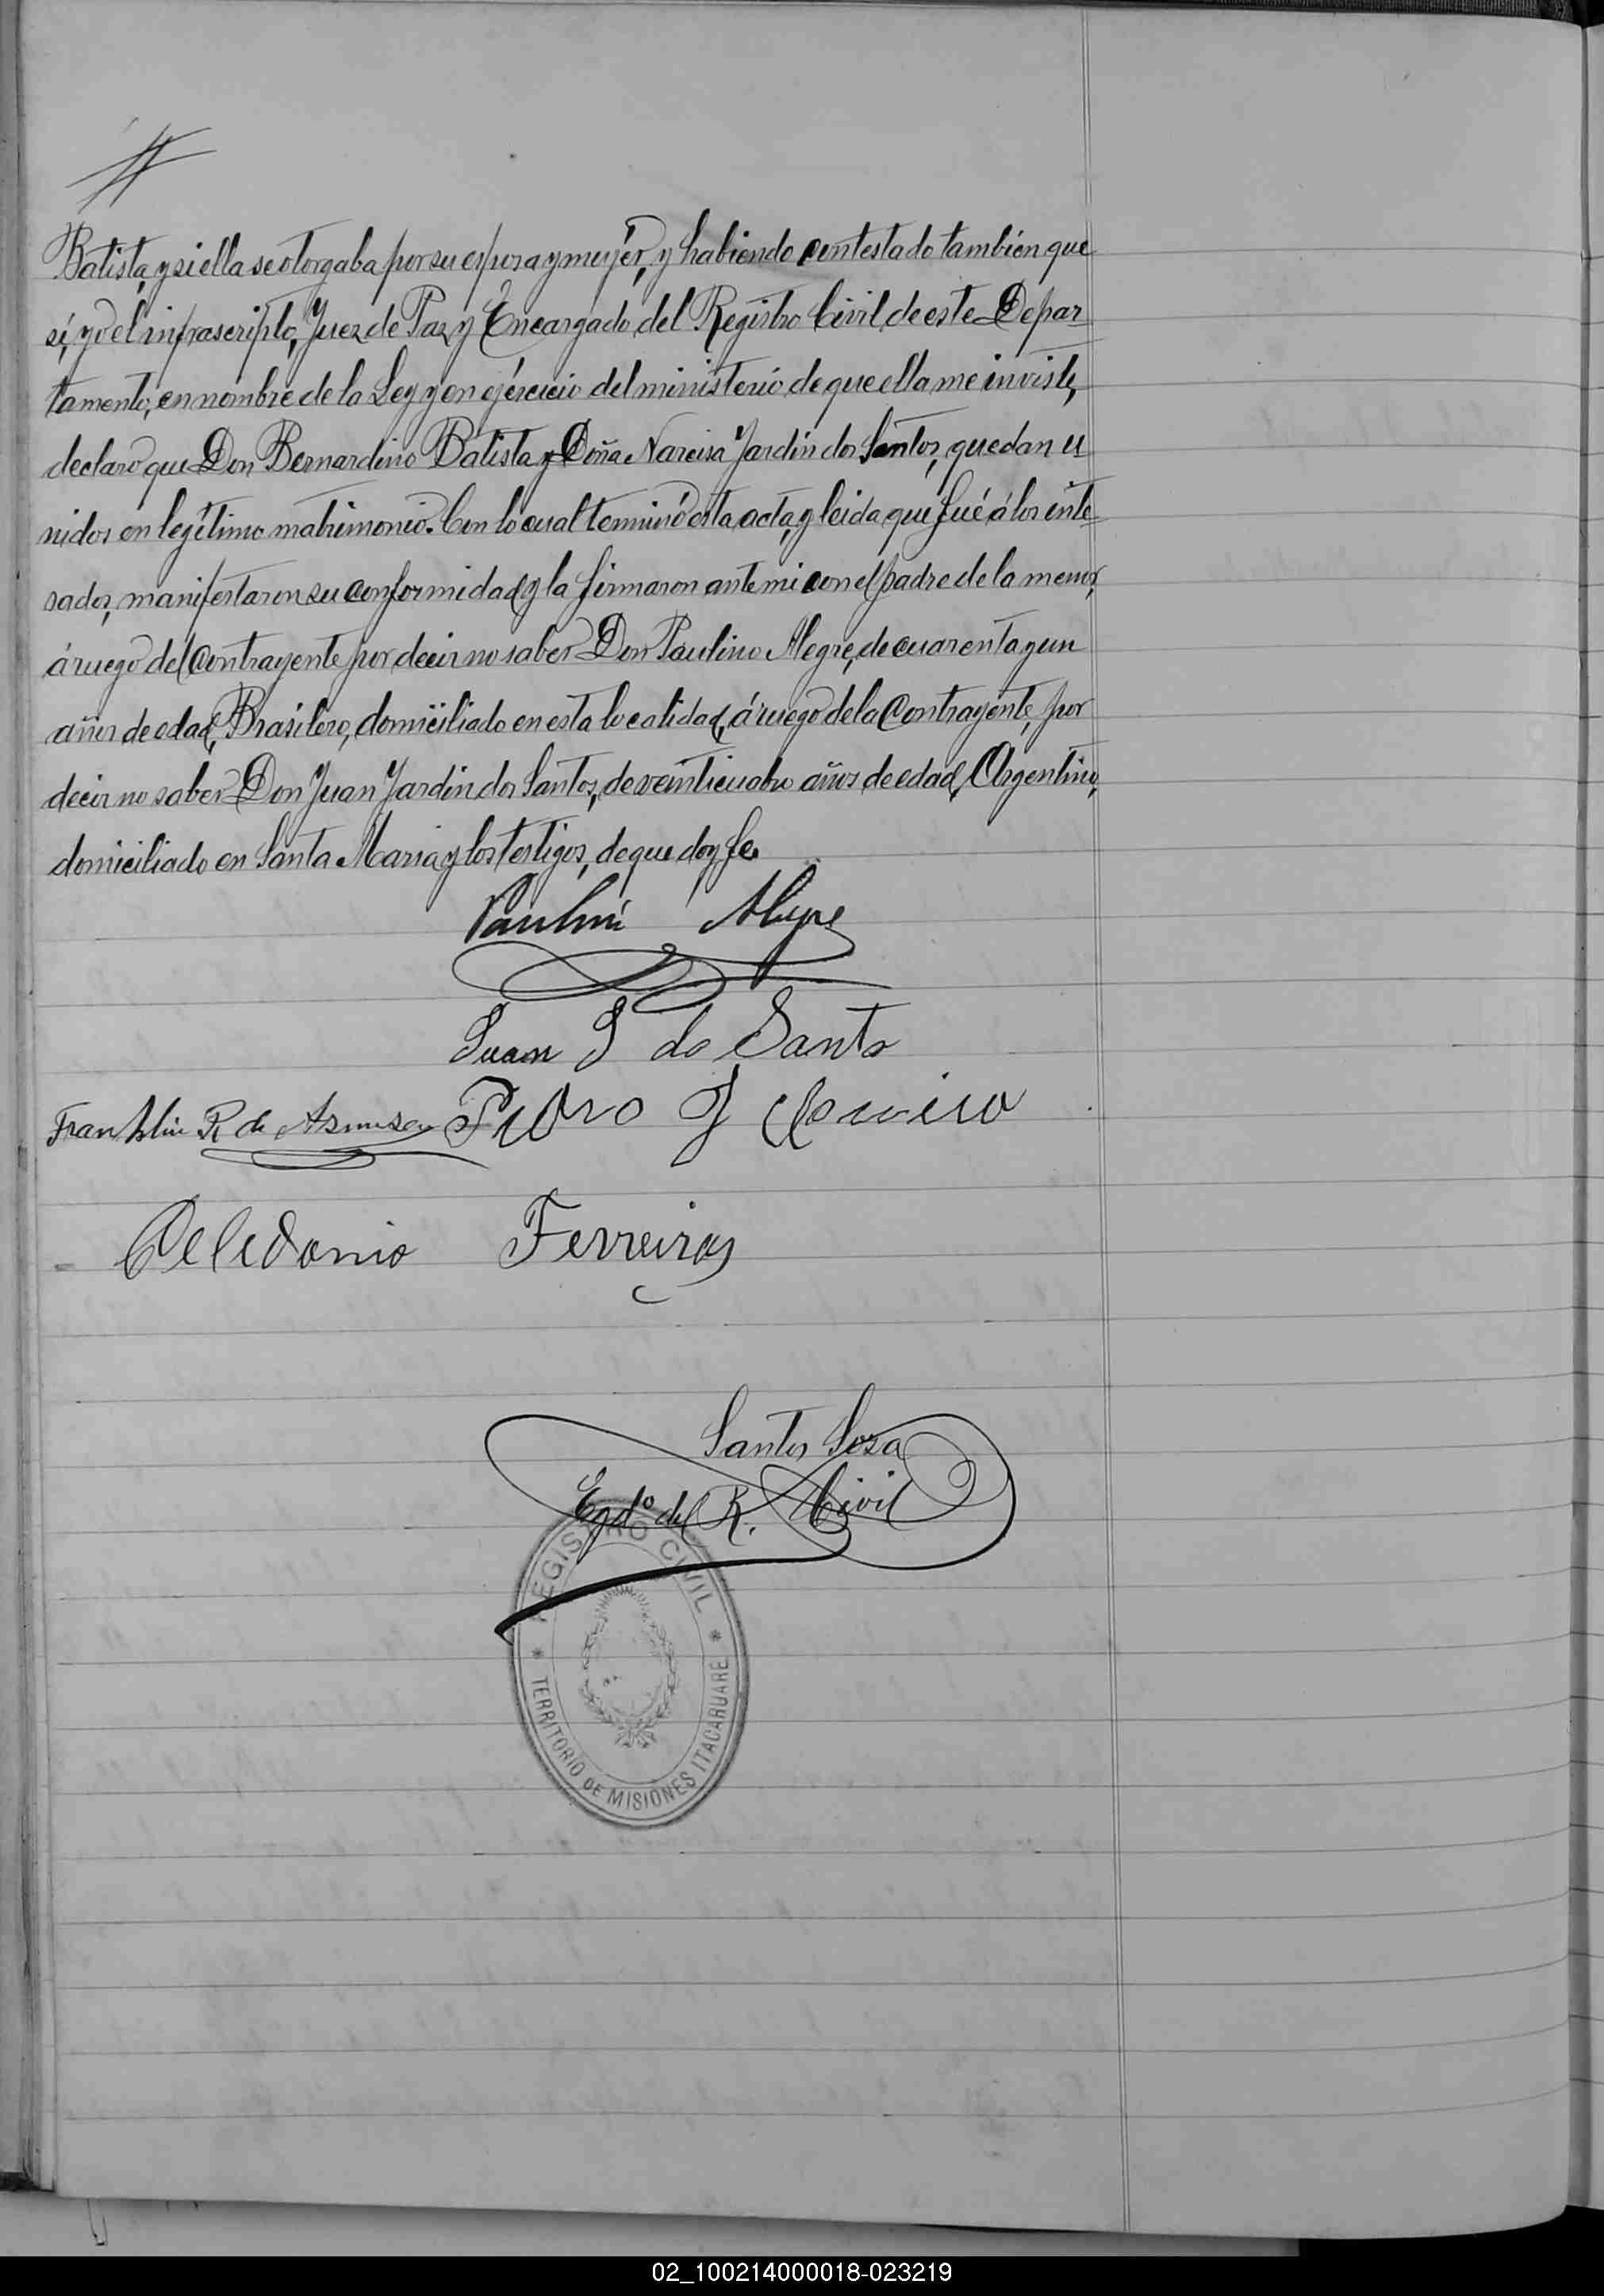 Batista, y si ella se otorgaba por su esposa y mujér, y habiendo contestado también que
sí, yo el infrascripto, Juez de Paz y Encargado del Registro Civil de este Depar-
tamento, en nombre de la Ley y en ejércicio del ministerio de que ella me inviste,
declaro que Don Bernardino Batista y Doña Narcisa Jardin dos Santos, quedan u-
nidos en legítimo matrimonio. Con lo cual terminó esta acta, y leida que fué á los inte-
sados, manifestaron su conformidad y la firmaron ante mi con el padre de la menor,
á ruego del Contrayente por decir no saber Don Paulino Alegre, de cuarenta y un
años de edad, Brasilero, domiciliado en esta localidad, á ruego de la Contrayente, por
decir no saber Don Juan Jardin dos Santos, de veinticuatro años de edad, Argentino,
domiciliado en Santa Maria y los testigos, de que doy fe.
Paulino Alegre
Juan J do Santo
Franklin R de
Pedro J
Celedonio Ferreira
Santos Sosa
Egdo del R. Civil
REGISTRO CIVIL
TERRITORIO DE MISIONES ITACARUARE
02_100214000018-023219